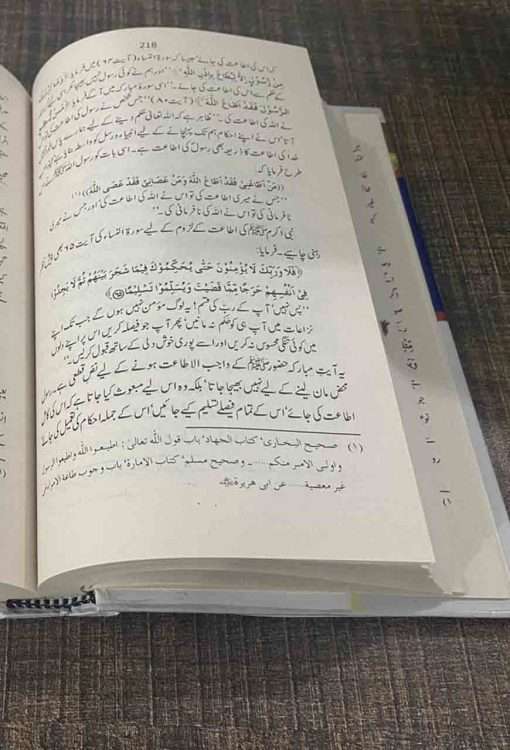 218
کہ اس کی اطاعت کی جائے جیسا کہ سورۃ النساء (آیت ۶۴) میں فرمایا
مِنْ رَّسُوْلٍ اِلَّا لِيُطَاعَ بِاِذْنِ اللّٰهِ "اور ہم نے کوئی رسول نہیں بھیجا مگر
کے حکم سے اس کی اطاعت کی جائے۔" اسی سورۂ مبارکہ میں آگے فرمایا
الرَّسُوْلَ فَقَدْ اَطَاعَ اللّٰهَ (آیت ۸۰) "جس شخص نے رسول کی اطاعت
نے اللہ کی اطاعت کی۔" ظاہر ہے کہ اللہ تعالیٰ حکم دینے کے لیے ہمارے پاس
آتا' اُس نے اپنے احکام ہم تک پہنچانے کے لیے انبیاء و رسل کو واسطہ بنایا ہے
خدا کی اطاعت کا ذریعہ بھی رسول کی اطاعت ہے۔ اسی بات کو رسول اللہ ﷺ نے
طرح فرمایا کہ:
((مَنْ اَطَاعَنِيْ فَقَدْ اَطَاعَ اللّٰهَ وَمَنْ عَصَانِيْ فَقَدْ عَصَى اللّٰهَ)) (۱)
"جس نے میری اطاعت کی تو اس نے اللہ کی اطاعت کی' اور جس نے میری
نافرمانی کی تو اس نے اللہ کی نافرمانی کی۔"
نبی اکرم ﷺ کی اطاعت کے لزوم کے لیے سورۃ النساء کی آیت ۶۵ بھی
رہنی چاہیے۔ فرمایا:
﴿فَلَا وَرَبِّكَ لَا يُؤْمِنُوْنَ حَتّٰى يُحَكِّمُوْكَ فِيْمَا شَجَرَ بَيْنَهُمْ ثُمَّ لَا يَجِدُوْا
فِيْٓ اَنْفُسِهِمْ حَرَجًا مِّمَّا قَضَيْتَ وَيُسَلِّمُوْا تَسْلِيْمًا ﴾
"پس نہیں' آپ کے ربّ کی قسم! یہ لوگ مؤمن نہیں ہوں گے جب تک اپنے
نزاعات میں آپ ہی کو حَکم نہ مانیں' پھر آپ جو فیصلہ کریں اس پر اپنے دلوں
میں کوئی تنگی محسوس نہ کریں اور اسے پوری خوش دلی کے ساتھ قبول کریں۔"
یہ آیت مبارکہ حضور ﷺ کے واجب الاطاعت ہونے کے لیے نص قطعی ہے۔ رسول
محض مان لینے کے لیے نہیں بھیجا جاتا' بلکہ وہ اس لیے مبعوث کیا جاتا ہے کہ اس کی کامل
اطاعت کی جائے' اس کے تمام فیصلے تسلیم کیے جائیں' اس کے جملہ احکام کی تعمیل کی جائے
(۱) صحیح البخاری' کتاب الجهاد' باب قول اللّٰه تعالٰی: اطیعوا اللّٰه واطیعوا الرسول
و اولی الامر منکم .... ۔ وصحیح مسلم' کتاب الامارة' باب وجوب طاعة الامراء
غیر معصیة ..... عن ابی هریرة